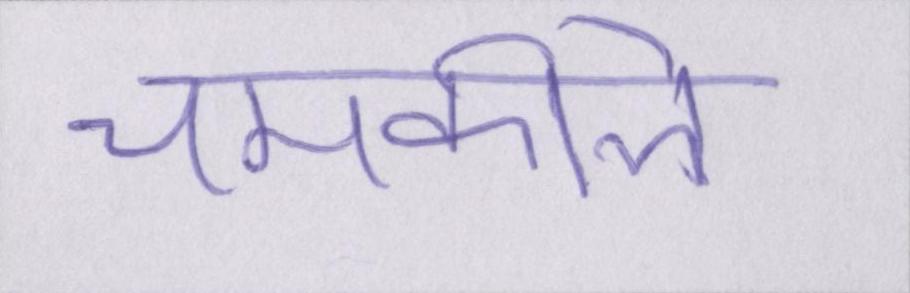 चमकीले